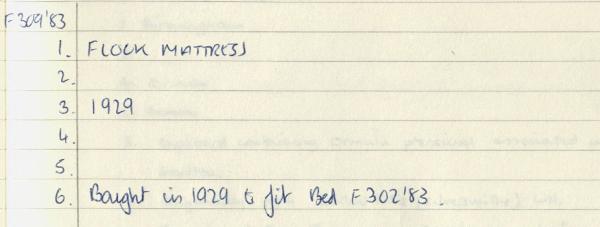 F309'83
1. FLOCK MATTRESS
2.
3. 1929
4.
5.
6. Bought in 1929 to fit Bed F302'83.